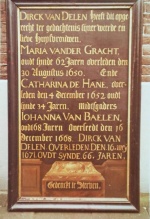 DIRCK VAN DELEN heeft dit opge
recht ter gedachtenis
syne huysvrouwen.
MARIA VANDER GRACHT,
oudt synde 62 Jaeren overleden den
30 Augustus 1650. Ende
CATHARINA DE HANE, over-
leden den 4 December 1652 oudt
synde 34 Jaren. midtsgaders
IOHANNA VAN BAELEN,
oudt 68 Jaeren overleedt den 16
december 1668 DIRCK VAN
DELEN OVERLEDEN DEN 16 mey
1671 OUDT SYNDE 66 JAREN
Gedenckt te Sterven.